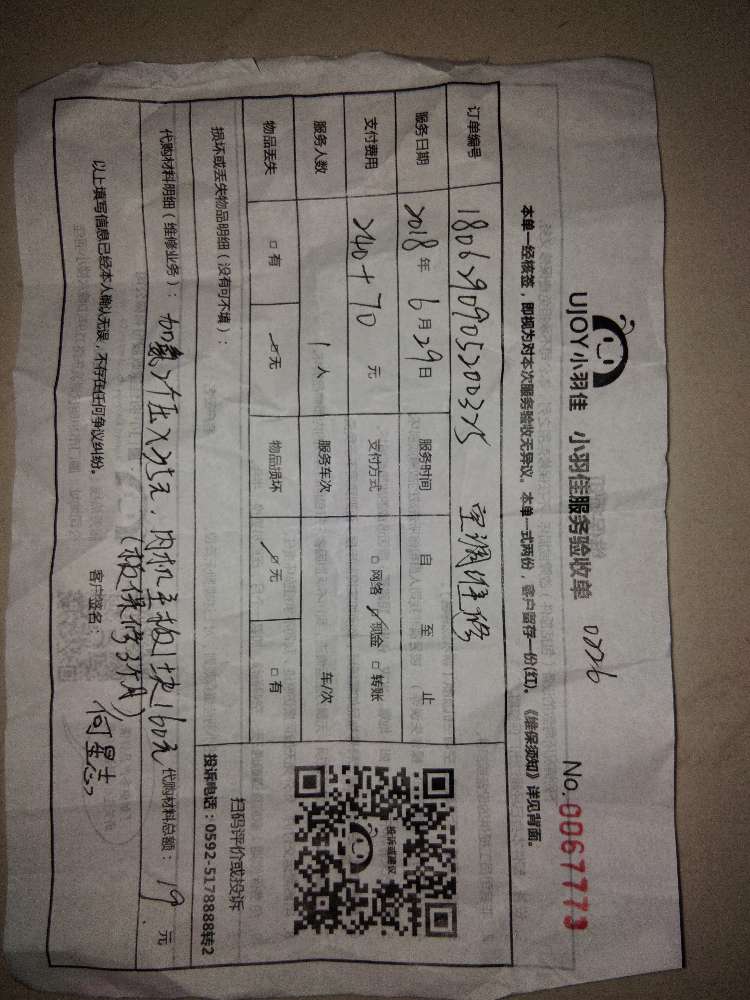 UJOY小羽佳 小羽佳服务验收单 0226
No.0067773
本单一经核签，即视为对本次服务验收无异议。本单一式两份，客户留存一份(红)。《维保须知》详见背面。
订单编号 空调维修
服务日期 2018年6月29日 服务时间 自 至 止
支付费用 240+70 元 支付方式 □网络 ☑现金 □转账
服务人数 1人 服务车次 车/次
物品丢失 □有 ☑无 物品损坏 ☑无 □有
损坏或丢失物品明细（没有可不填）：
投诉或建议
扫码评价或投诉
投诉电话：0592-5178888转2
代购材料明细（维修业务）：加氟2个压 内机主板1块160元 代购材料总额： 元
(板保修3个月)
以上填写信息已经本人确认无误，不存在任何争议纠纷。 客户签名：